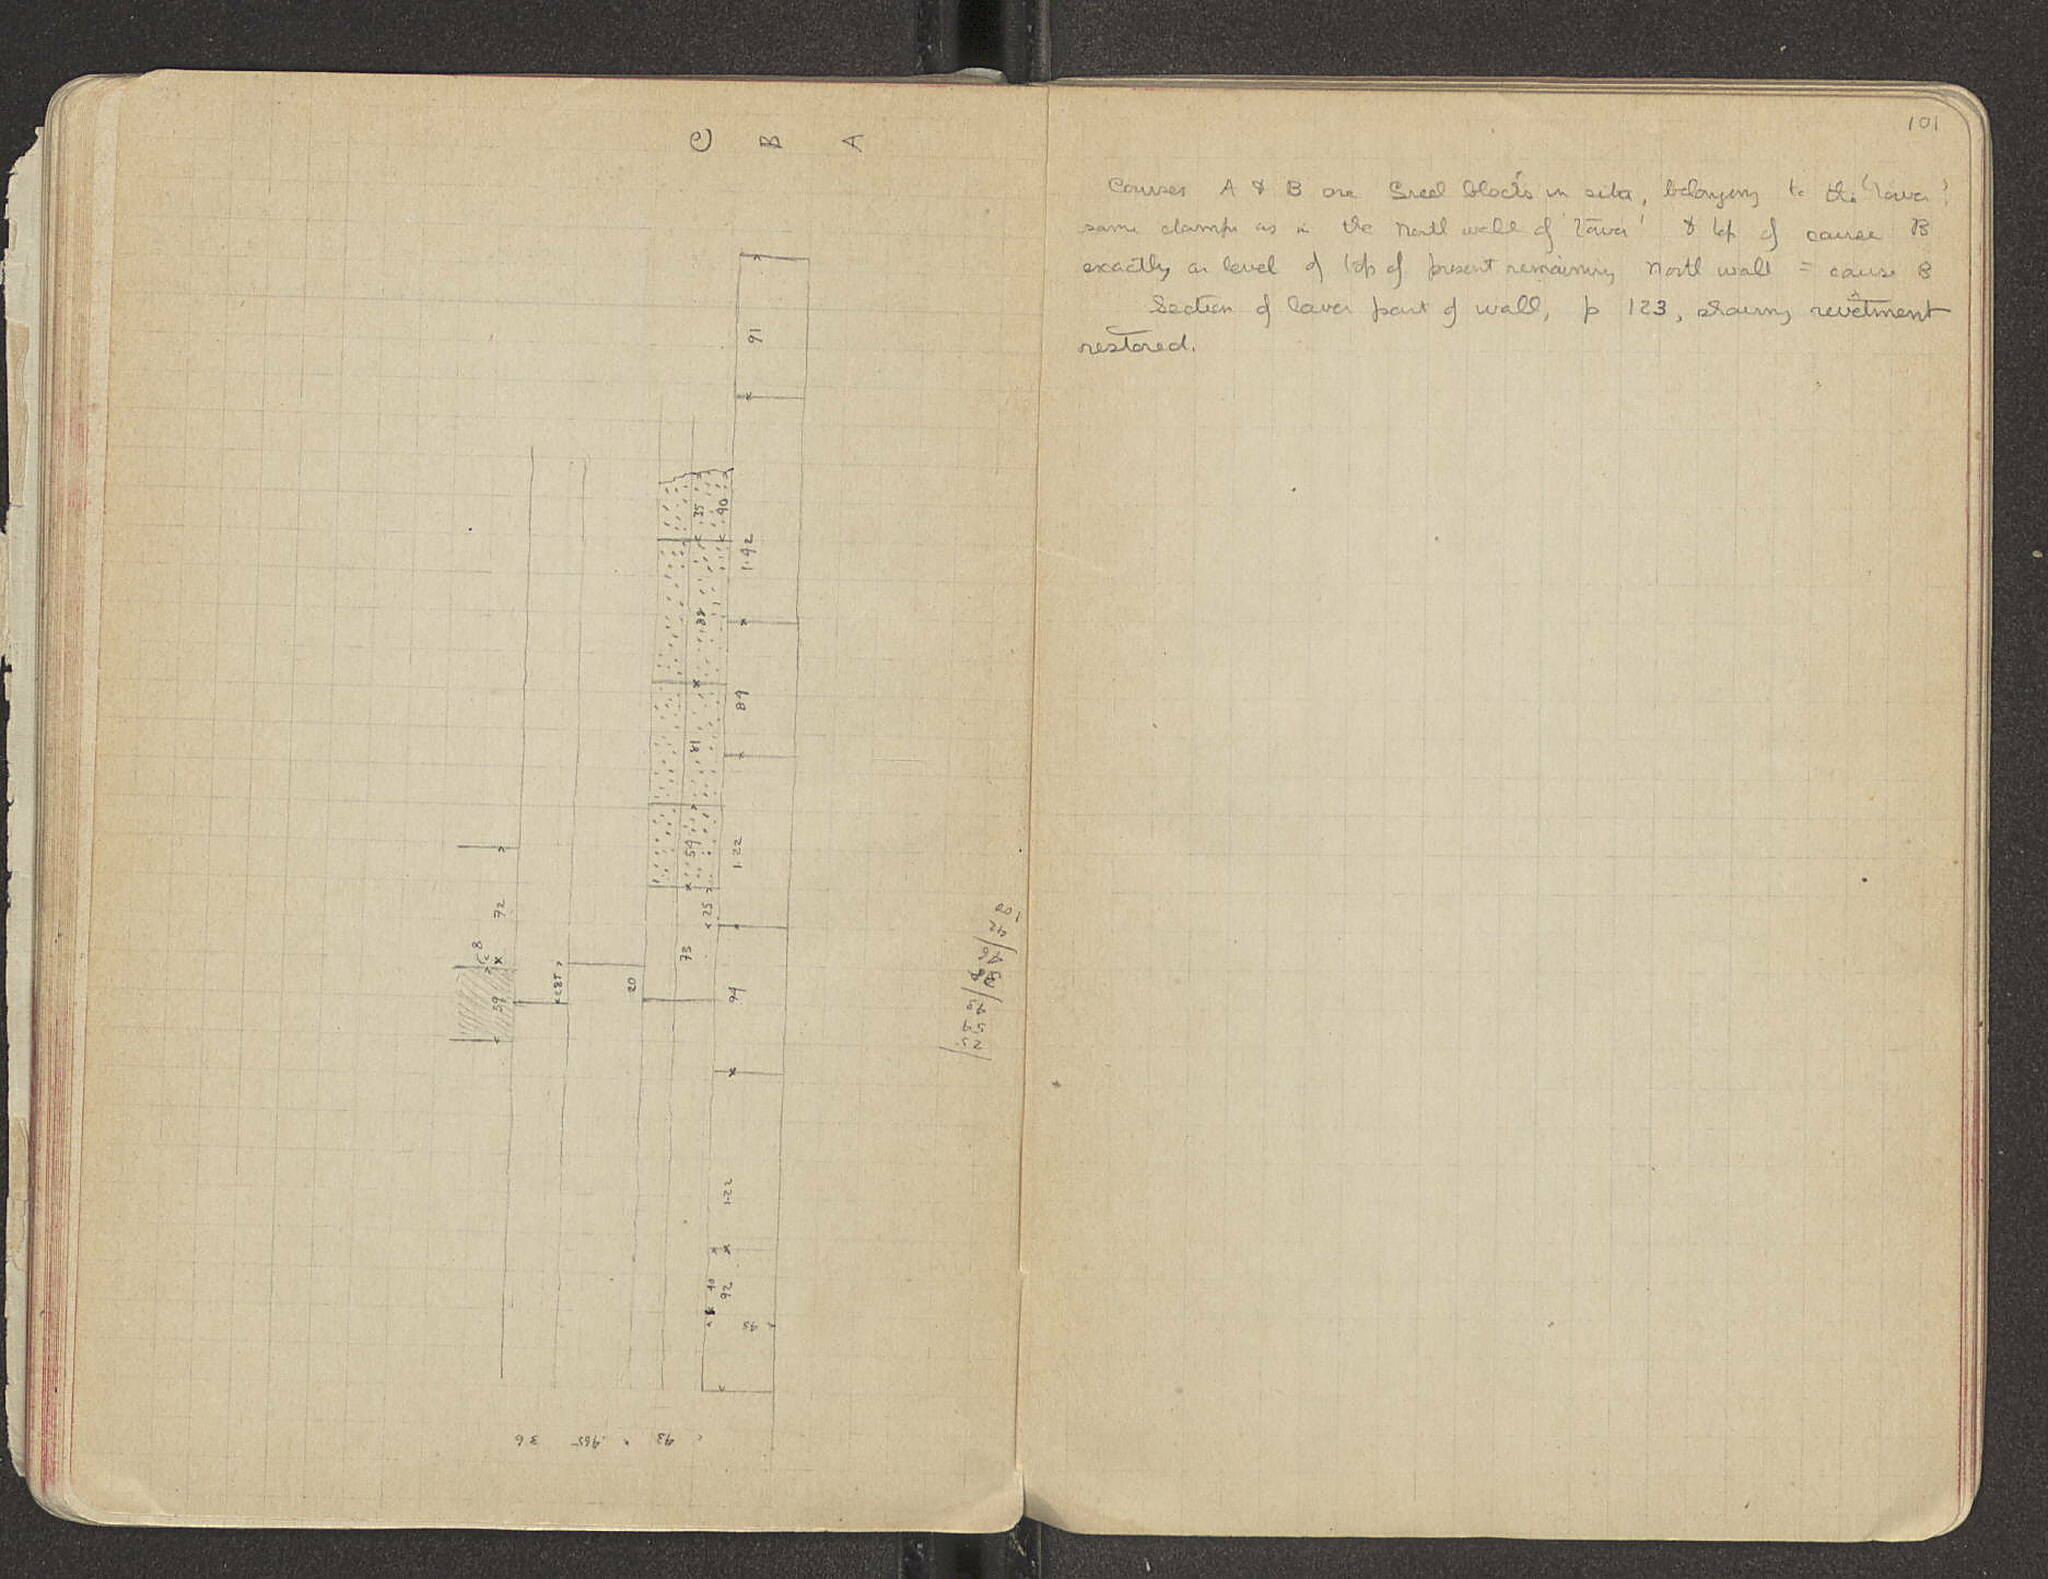 C B A
91
35
90
1.42
88
89
81
59
1.22
72
25
8
73
59
285
20
94
1.22
10
92
45
43 .465 36
101
Courses A & B are Greek blocks in situ, belonging to the 'Tower'
same clamps as in the North wall of 'Tower' & top of course B
exactly on level of top of present remaining North wall = course B
Section of lower part of wall, p 123, showing revetment
restored.